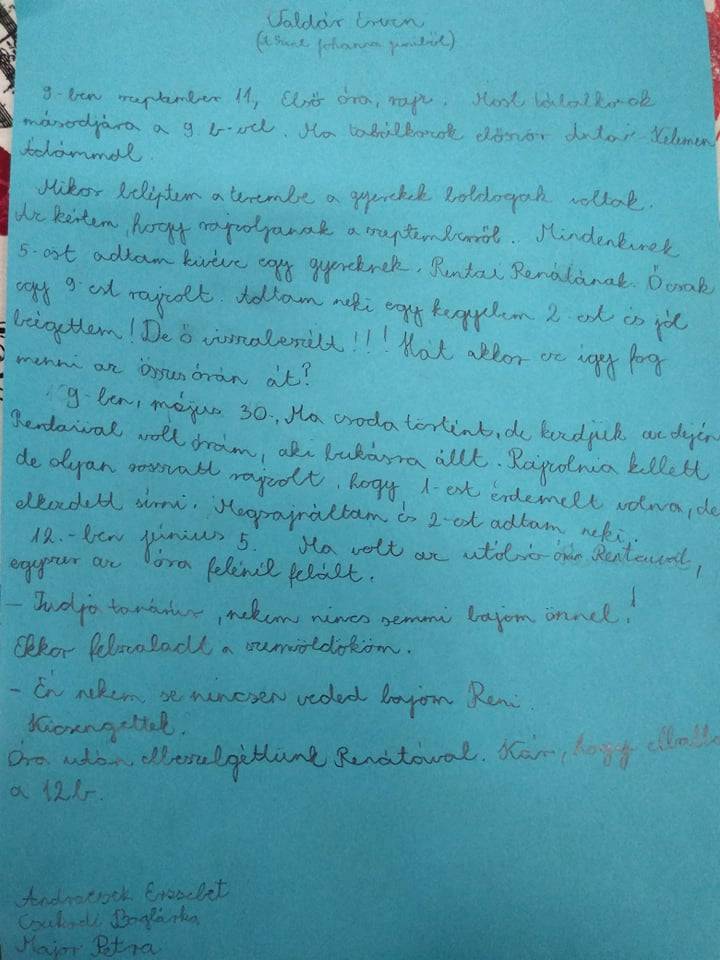 Valdár Ervin
(A Szent Johanna gimiből)
9-ben szeptember 11, Első óra, rajz. Most találkozok
másodjára a 9 b-vel. Ma találkozok először Antai-Kelemen
Ádámmal.
Mikor beléptem a terembe a gyerekek boldogak voltak.
Azt kértem, hogy rajzoljanak a szeptemberről. Mindenkinek
5-ost adtam kivéve egy gyereknek. Rentai Renátának. Ő csak
egy 9-est rajzolt. Adtam neki egy kegyelem 2-est és jól
beégettem! De ő visszabeszélt!!! Hát akkor ez így fog
menni az összes órán át?
9-ben, május 30., Ma csoda történt, de kezdjük az elején
Rentaival volt órám, aki bukásra állt. Rajzolnia kellett
de olyan rosszatt rajzolt, hogy 1-est érdemelt volna, de
elkezdett sírni. Megsajnáltam és 2-est adtam neki.
12.-ben június 5. Ma volt az utolsó órám Rentaival,
egyszer az óra felénél felált.
- Tudja tanárúr, nekem nincs semmi bajom önnel!
Ekkor felszaladt a szemöldököm.
- Én nekem se nincsen veled bajom Reni.
Kicsengettek.
Óra után elbeszélgettünk Renátával. Kár, hogy elballa
a 12b.
Erzsébet
Boglárka
Major Petra